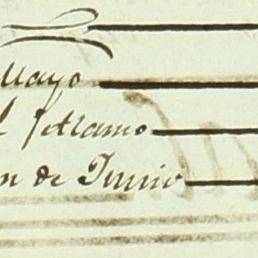 Mayo
l setiamo
n de Junio